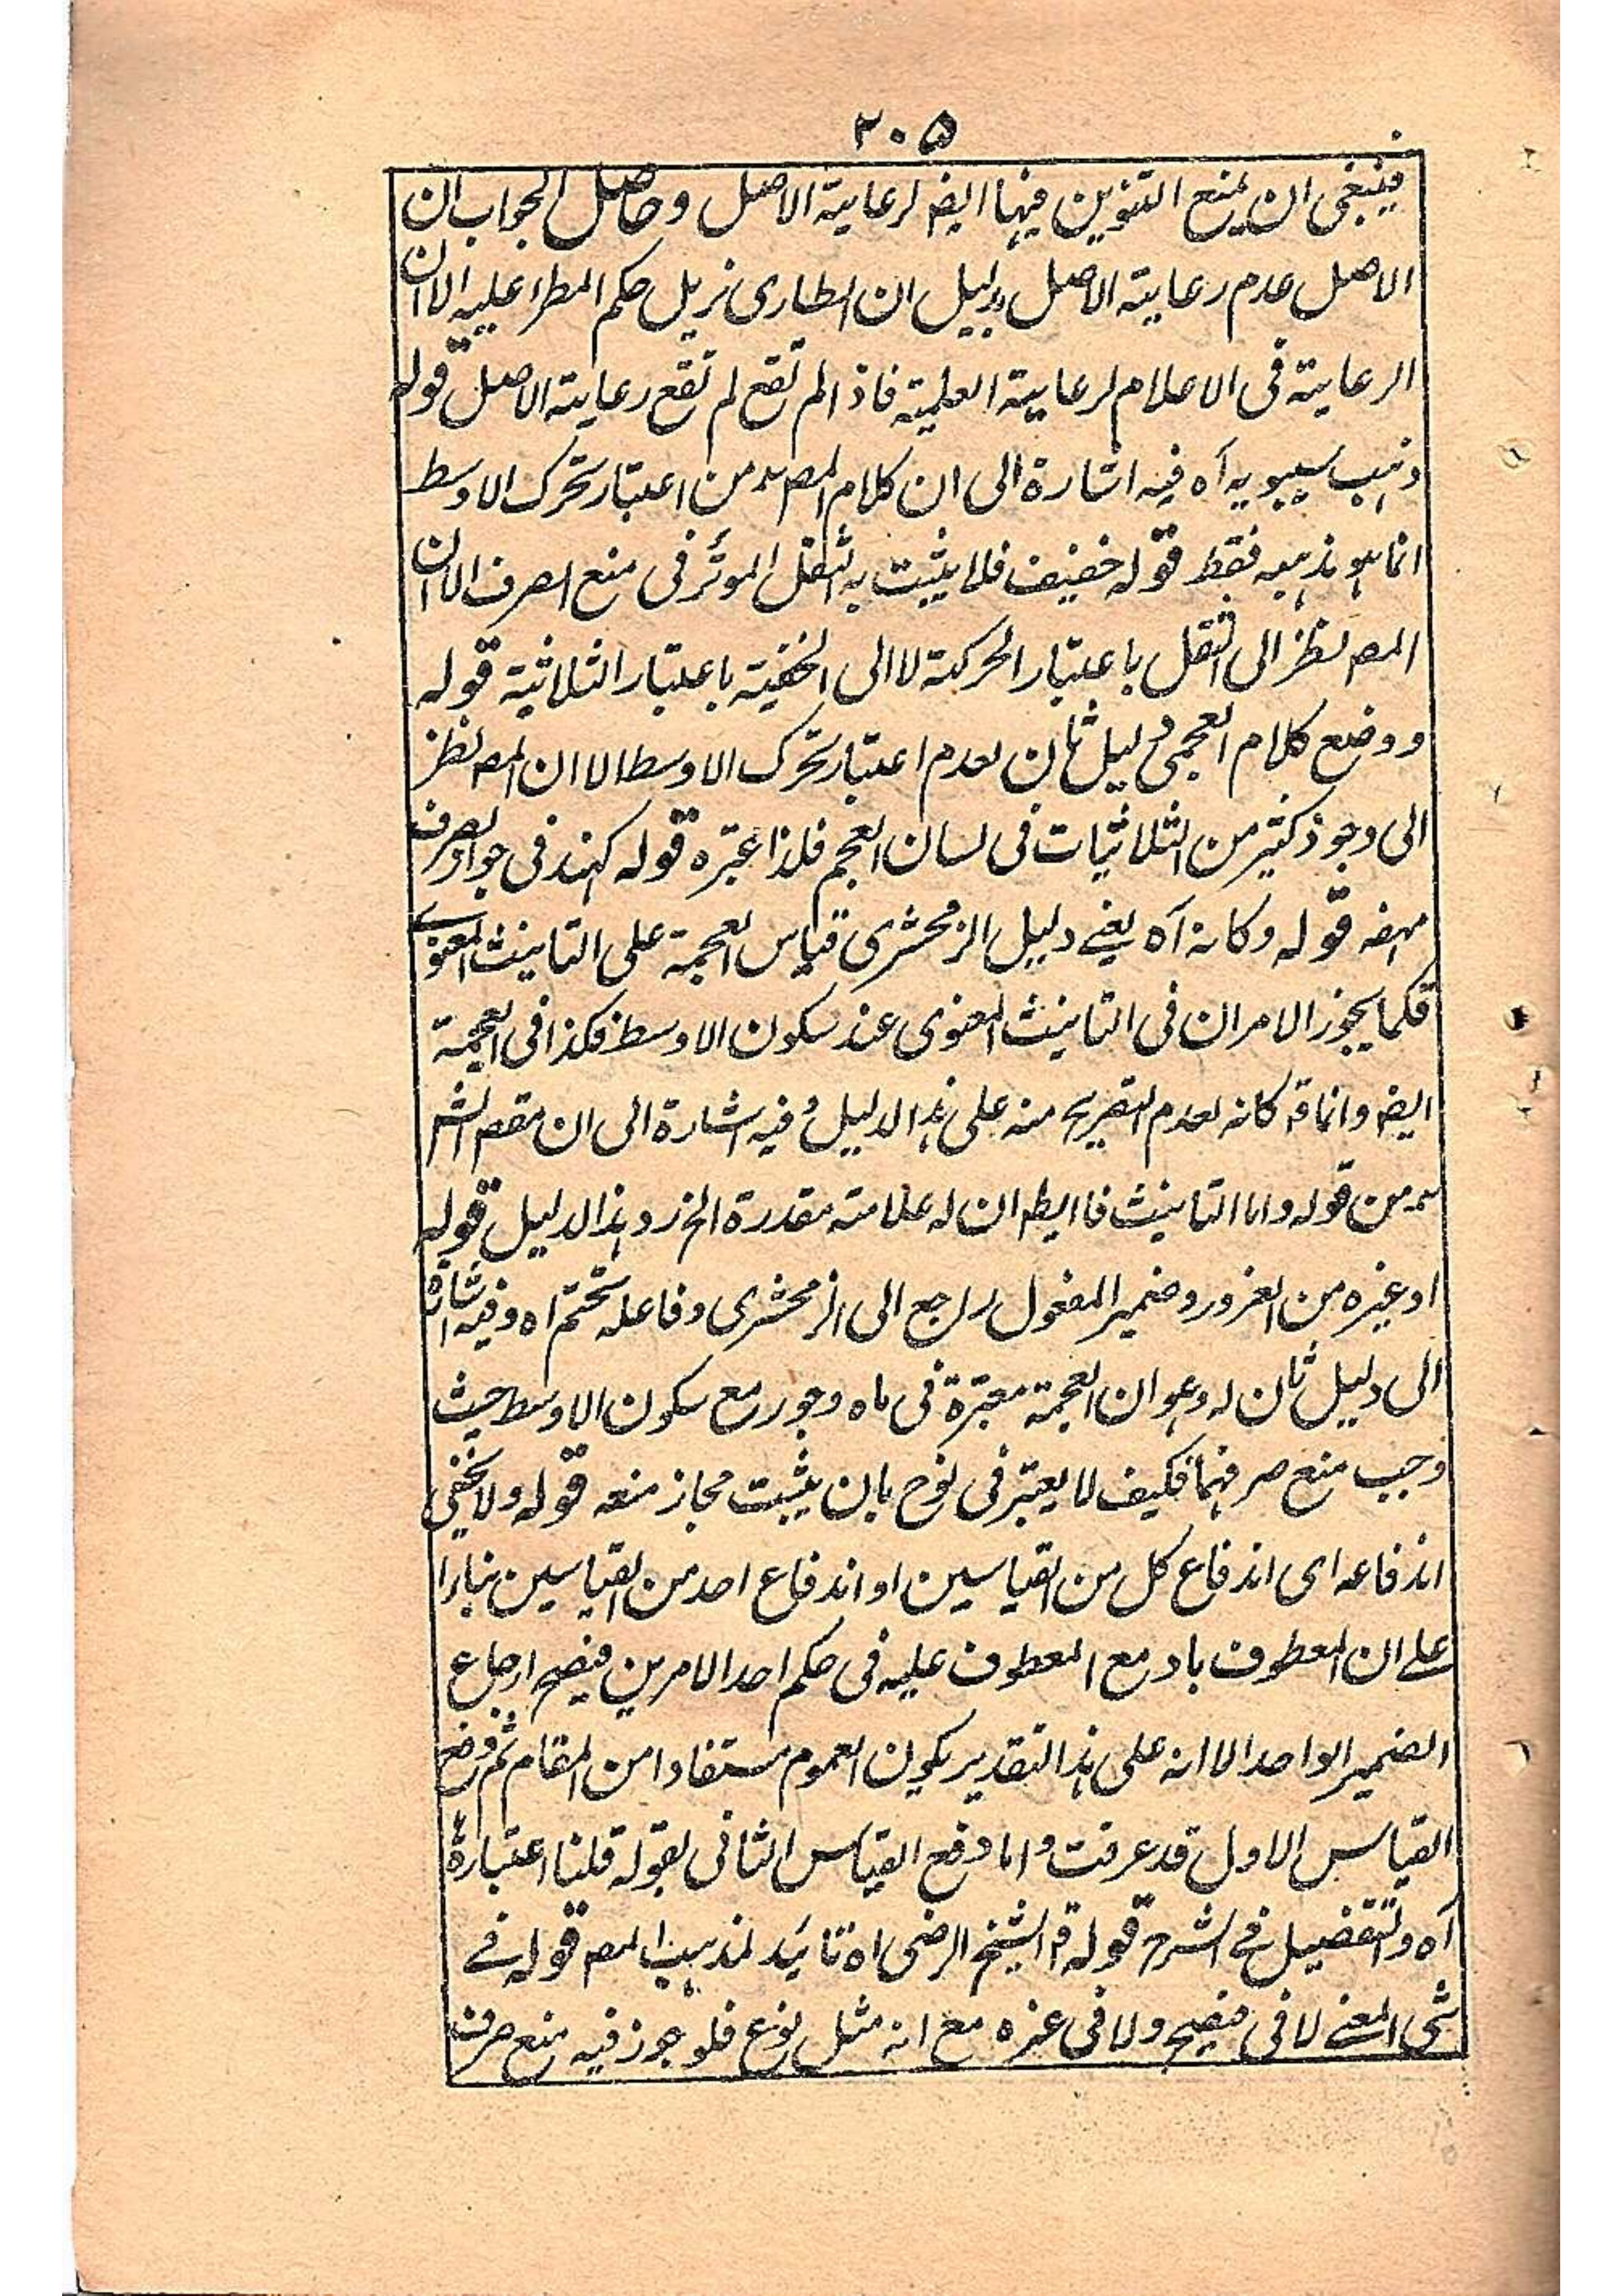 ۲۰۵
فینبغی ان یمنع التنوین فیها ایضا لرعایة الاصل وحاصل الجواب ان
الاصل عدم رعایة الاصل بدلیل ان الطاری یزیل حکم المطرا علیه الا ان
الرعایة فی الاعلام لرعایة العلمیة فاذا لم تقع لم تقع رعایة الاصل قوله
ذهب سیبویه آه فیه اشارة الی ان کلام المصه من اعتبار تحرک الاوسط
انما هو مذهبه فقط قوله خفیف فلا یثبت به الثقل الموثر فی منع الصرف الا ان
المصه نظر الی الثقل باعتبار الحرکة لا الی الخفیة باعتبار الثلاثیة قوله
ووضع کلام العجمی دلیل ثان لعدم اعتبار تحرک الاوسط الا ان المصه نظر
الی وجود کثیر من الثلاثیات فی لسان العجم فلذا اعتبره قوله کهند فی جواز صرف
قوله وکانه آه یعنے دلیل الزمخشری قیاس العجمة علی التانیث المعنوی
فکما یجوز الامران فی التانیث المعنوی عند سکون الاوسط فکذا فی العجمة
ایضا وانما قه کانه لعدم التصریح منه علی هذا الدلیل وفیه اشارة الی ان مقصه الشر
سره من قوله واما التانیث فان له علامته مقدرة الخ رد هذا الدلیل قوله
او غیره من الغرور وضمیر المفعول راجع الی الزمخشری وفاعله تحتم اه وفیه اشارة
الی دلیل ثان له وهو ان العجمة معتبرة فی ماه وجور مع سکون الاوسط حیث
وجب منع صرفهما فکیف لا یعتبر فی نوح بان یثبت مجاز منعه قوله ولا یخفی
اندفاعه ای اندفاع کل من القیاسین او اندفاع احد من القیاسین بناءا
علے ان المعطوف باو مع المعطوف علیه فی حکم احد الامرین فیصح ارجاع
الضمیر الواحد الا انه علی هذا التقدیر یکون العموم مستفادا من المقام ثم دفع
القیاس الاول قد عرفت واما دفع القیاس الثانی بقوله قلنا اعتبارها
آه والتفصیل فی الشرح قوله قه الشیخ الرضی اه تائید لمذهب المصه قوله فے
شی المعنے لا فی فصیح ولا فی غیره مع انه مثل نوع فلو جوز فیه منع صرف